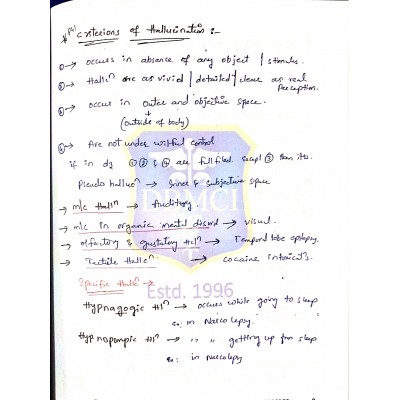 Criterions of Hallucination :-
① → occurs in absence of any object / stimulus.
② → Hallcⁿ are as vivid / detailed / clear as real
perception.
③ → occur in outer and objective space.
↓
(outside of body)
④ → Are not under willful control
if in dz ① ② & ④ are fulfilled except ③ then its
Pseudo hallucⁿ → Inner & subjective space
→ m/c Hallⁿ → Auditory.
→ m/c in organic mental disord → visual.
→ olfactory & gustatory Hclⁿ → Temporal lobe epilepsy.
→ Tactile Hallcⁿ → cocaine intoxicatⁿ.
Specific Hallcⁿ →
DPMCI
Estd. 1996
Hypnagogic Hlⁿ → occurs while going to sleep
in Narcolepsy.
Hypnopompic Hlⁿ → " " getting up from sleep
in narcolepsy